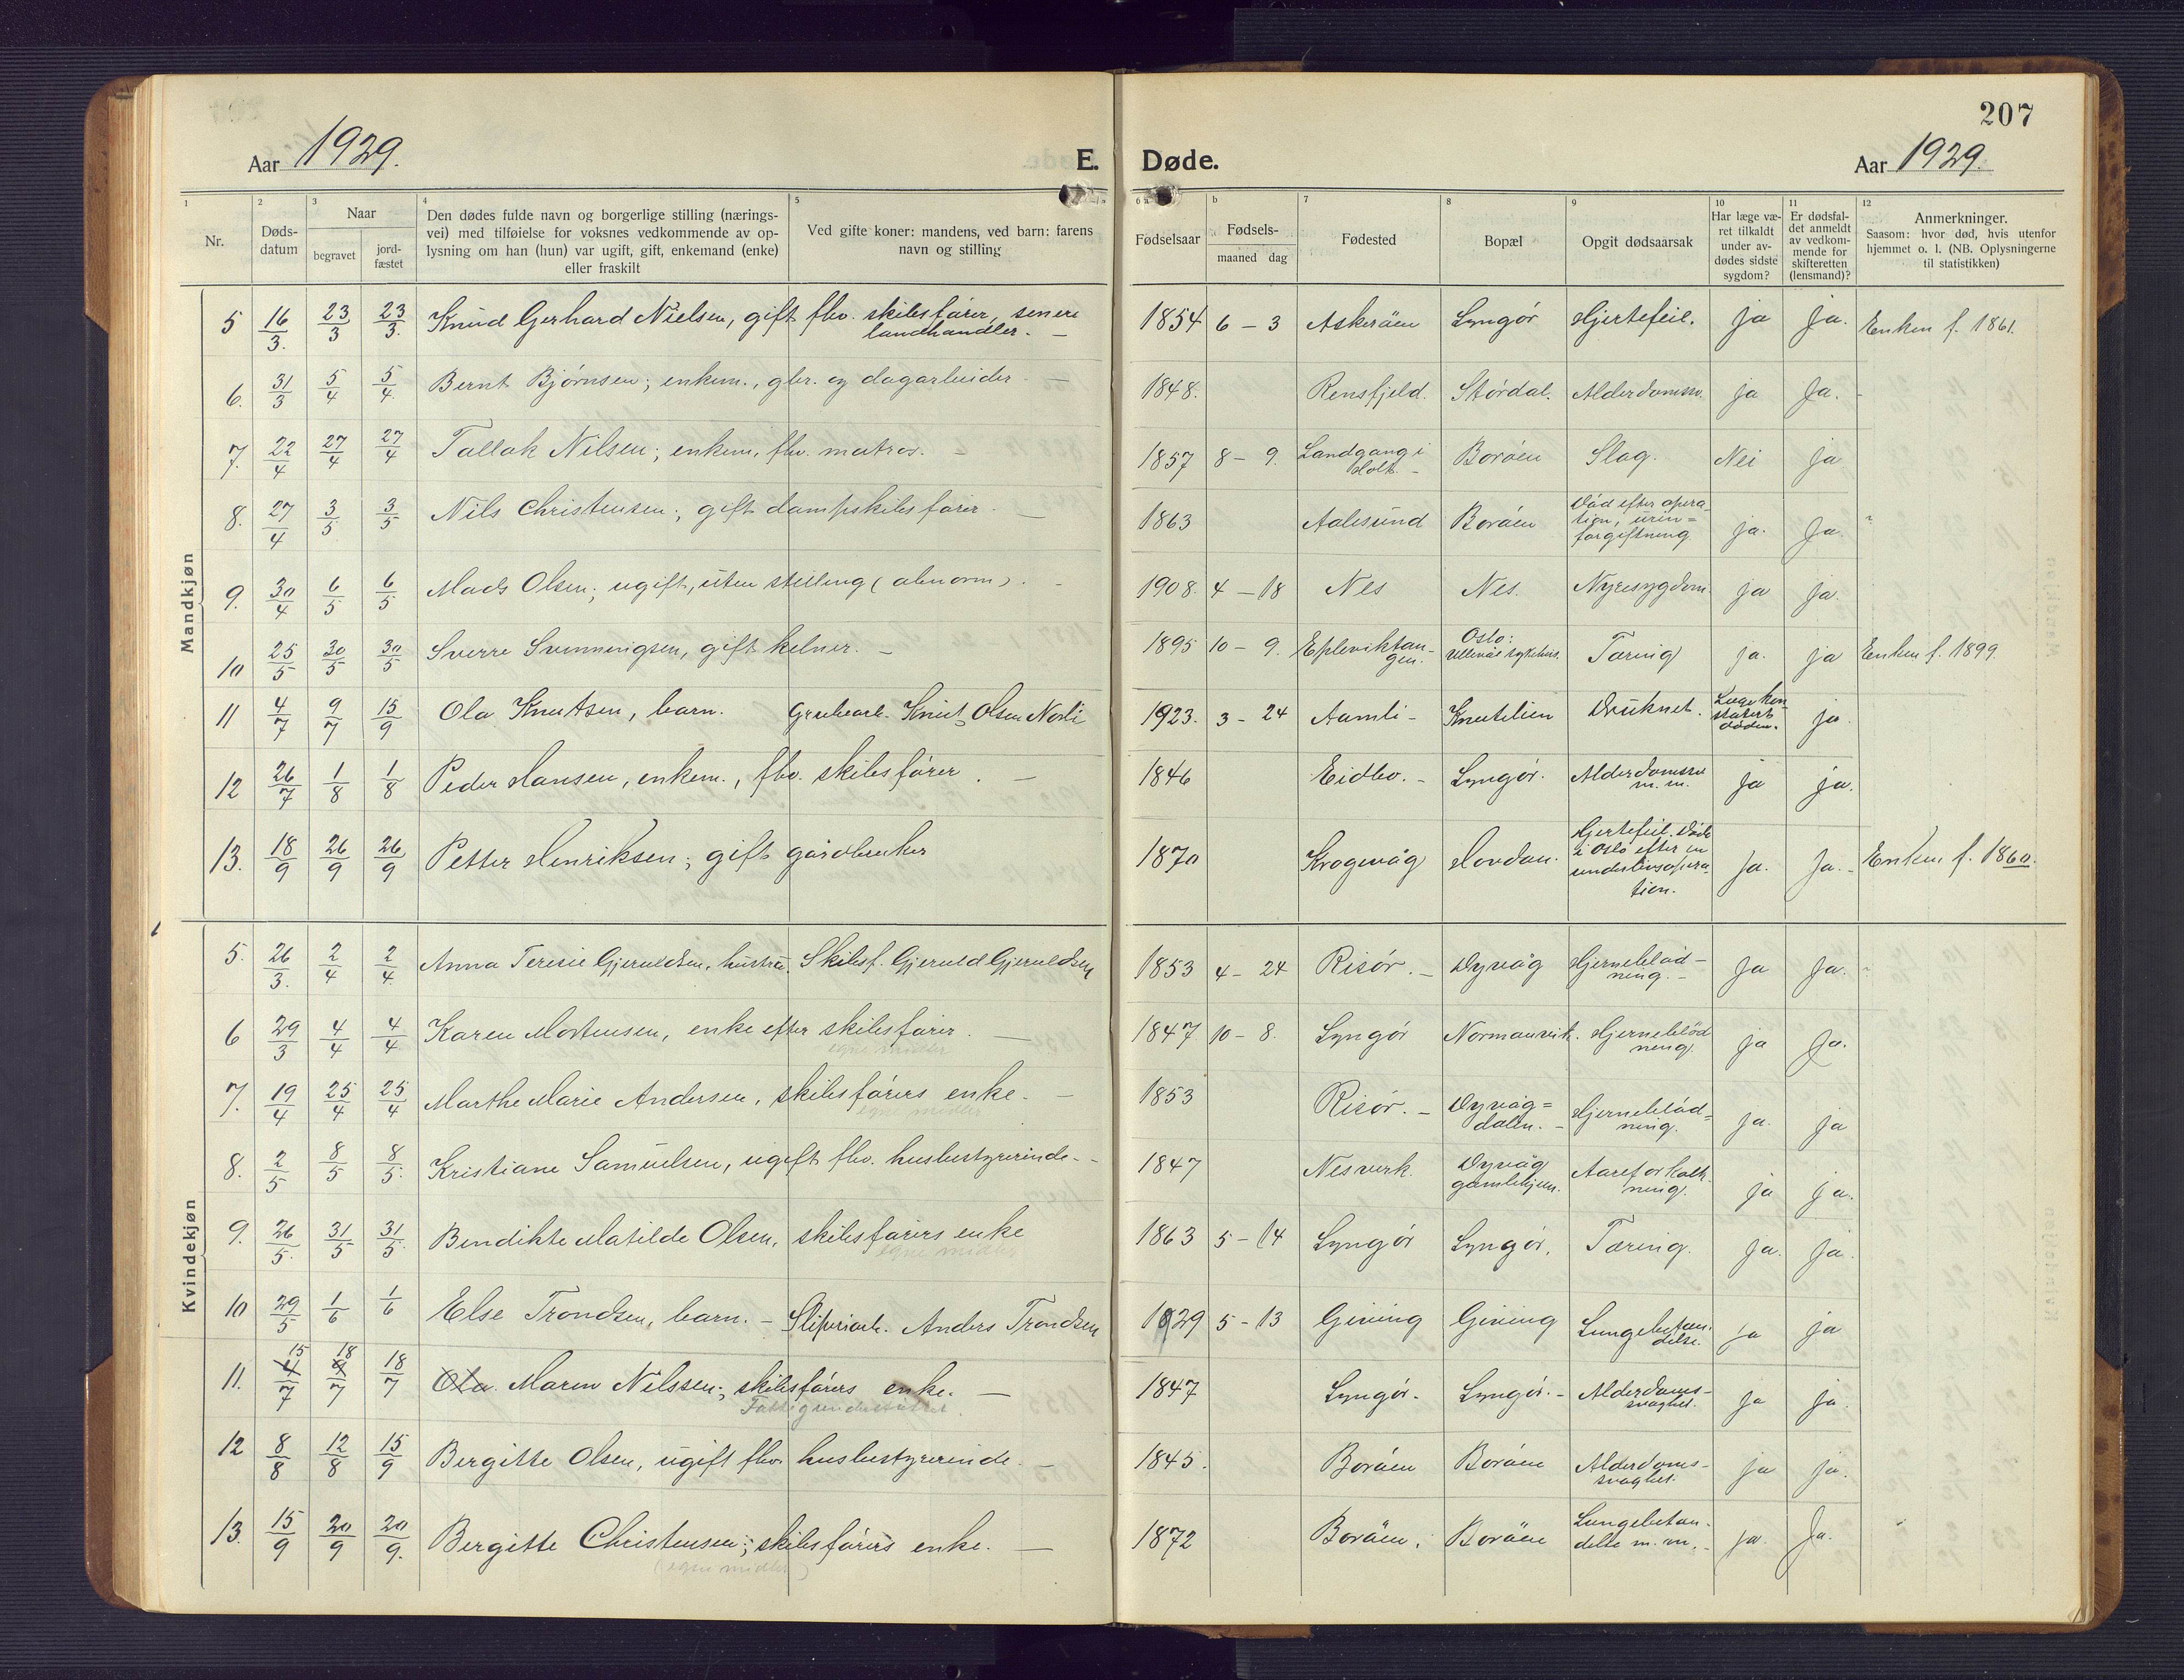 207
Aar 1929.
E. Døde.
Aar 1929.
1 Nr.
2 Døds-datum
3 Naar begravet jord-fæstet
4 Den dødes fulde navn og borgerlige stilling (nærings-
vei) med tilføielse for voksnes vedkommende av op-
lysning om han (hun) var ugift, gift, enkemand (enke)
eller fraskilt
5 Ved gifte koner: mandens, ved barn: farens
navn og stilling
6 a Fødselsaar
b Fødsels-
maaned dag
7 Fødested
8 Bopæl
9 Opgit dødsaarsak
10 Har læge væ-
ret tilkaldt
under av-
dødes sidste
sygdom?
11 Er dødsfal-
det anmeldt
av vedkom-
mende for
skifteretten
(lensmand)?
12 Anmerkninger.
Saasom: hvor død, hvis utenfor
hjemmet o. l. (NB. Oplysningerne
til statistikken)
Mandkjøn
5 16/3. 23/3 23/3. Knud Gerhard Nielsen, gift fhv. skibsfører, senere landhandler. — 1854 6 – 3 Askerøen Lyngør Hjertefeil. ja ja. Enken f. 1861.
6. 31/3 5/4 5/4. Bernt Bjørnsen; enkem., gbr. og dagarbeider — 1848. Rensfjeld. Størdal. Alderdomssv. ja Ja.
7. 22/4 27/4 27/4 Tallak Nilsen; enkem, fhv. matros. – 1857 8 – 9. Landgang i Holt. – Borøen Slag. Nei ja
8. 27/4 3/5 3/5 Nils Christensen; gift dampskibsfører. — 1863 Aalesund Borøen Død efter opera-tion, urin=forgiftning ja. Ja.
9. 30/4 6/5 6/5 Mads Olsen; ugift, uten stilling (abnorm). – 1908. 4 – 18 Nes Nes. Nyresygdom. ja ja.
10 25/5 30/5 30/5 Sverre Svenningsen, gift kelner. – 1895 10 – 9. Epleviktan-gen. Oslo: Ullevål sykehus. Tæring ja. ja Enken f. 1899.
11 4/7 9/7 15/9 Ola Knutsen, barn. Grubearb. Knut Olsen Norli 1923. 3 – 24 Aamli – Knutelien Druknet. Læge kon-statert døden. ja.
12 26/7 1/8 1/8 Peder Hansen, enkem., fhv. skibsfører. — 1846 Eidbo. – Lyngør. Alderdomssv. m.m. ja ja.
13. 18/9 26/9 26/9 Petter Henriksen; gift gårdbruker 1870 Krogevåg Hovdan. Hjertefeil. Døde i Oslo efter en underlivsopera-tion. ja. Ja. – Enken f. 1860.
Kvindekjøn
5. 26/3. 2/4 2/4. Anna Teresie Gjeruldsen, hustru. Skibsf. Gjeruld Gjeruldsen 1853 4 – 24 Risør. – Dyvåg Hjerneblød-ning. – Ja Ja.
6 29/3 4/4 4/4. Karen Mortensen, enke efter skibsfører. — egne midler 1847 10 – 8. Lyngør Normanvik. Hjerneblød ning. ja Ja.
7. 19/4 25/4 25/4 Marthe Marie Andersen, skibsførers enke. – egne midler 1853 Risør. – Dyvåg=dalen. – Hjerneblød=ning. ja. ja
8. 2/5 8/5 8/5. Kristiane Samuelsen, ugift fhv. husbestyrerinde. – 1847 Nesverk. Dyvåg gamlehjem. Aareforkalk-ning. ja ja.
9. 26/5. 31/5 31/5. Bendikte Matilde Olsen, skibsførers enke egne midler 1863 5 – 14 Lyngør Lyngør. Tæring. ja. ja.
10 29/5 1/6 1/6 Else Trondsen, barn. – Sliperiarb. Anders Trondsen 1929 5 – 13 Giving Giving Lungebetæn-delse. ja ja
11. 15/7 18/7 18/7 Ola. Maren Nilssen; skibsførers enke. — Fattigunderstøttet. 1847 Lyngør. Lyngør. – Alderdoms-svaghet. ja ja.
12 8/8 12/8 15/9 Bergitte Olsen, ugift fhv. husbestyrerinde. – 1845. Borøen Borøen Alderdoms-svaghet. ja ja.
13. 15/9 20/9 20/9. Bergitte Christensen; skibsførers enke. — (egne midler) 1872 Borøen. Borøen Lungebetæn-delse m.m. – ja. Ja.